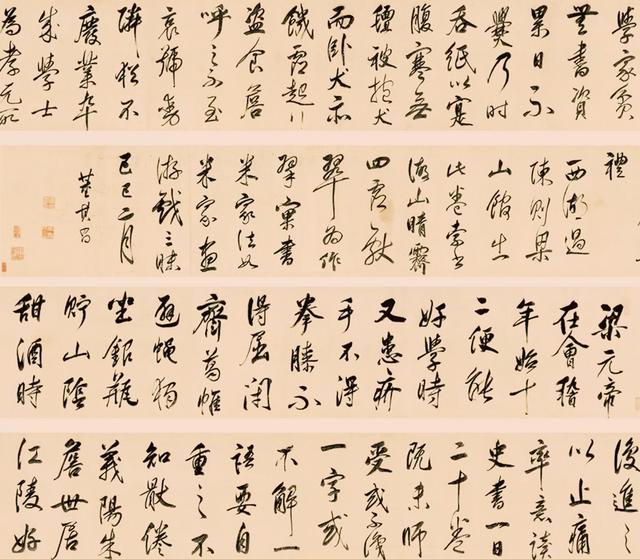 學家貧
無書資
累日不
爨乃時
吞紙以寔
腹寒無
氈被抱犬
而臥犬亦
餓虛起行
盜食詹
呼之不至
哀號動
隣猶不
廢業卒
成學士
為孝元所
禮
西湖過
陳則梁
山館出
此卷索書
湖山晴霽
四虛獻
翠為作
擘窠書
米家法與
米家畫
游戲三昧
己巳二月
董其昌
梁元帝
在會稽
年始十
二便能
好學時
又患疥
手不得
拳膝不
得屈閑
齋葛幃
避蠅獨
坐銀瓶
貯山陰
甜酒時
復進之
以止痛
率意讀
史書一日
二十卷
既未師
受或不識
一字或
不解一
語要自
重之不
知厭倦
義陽朱
詹世居
江陵好